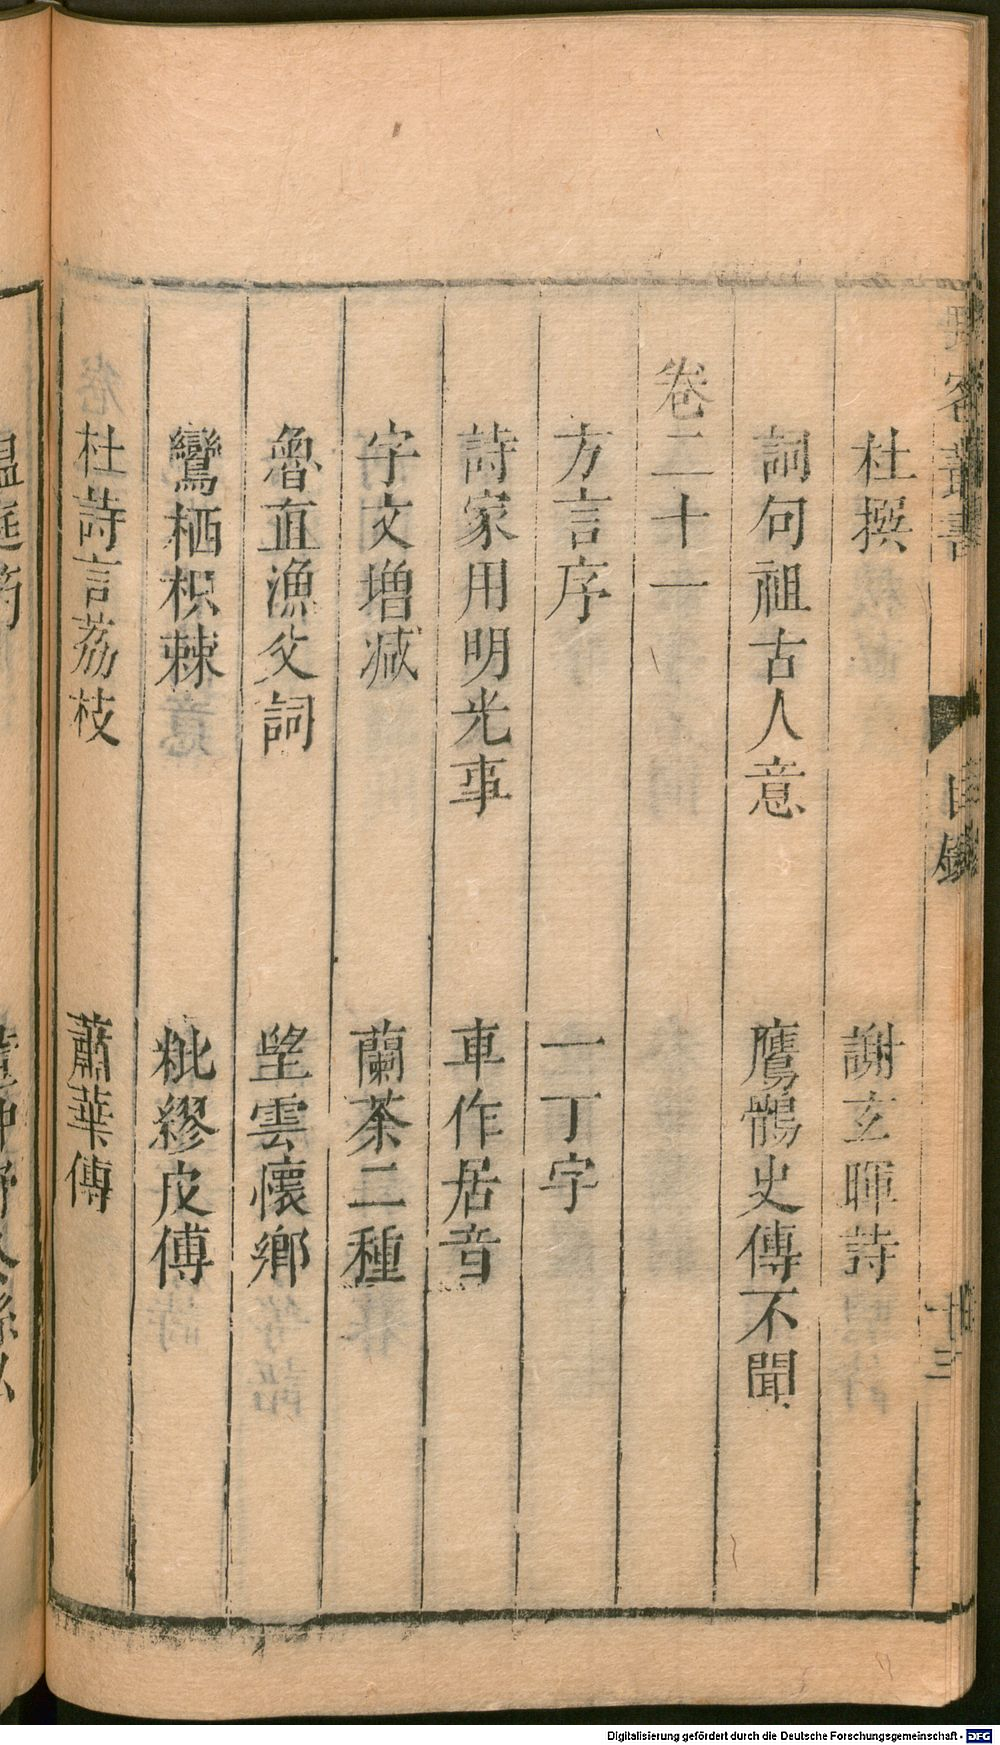 野客叢書
目錄
十三
杜撰　謝玄暉詩
詞句祖古人意　鷹鶻史傳不聞
卷二十一
方言序　一丁字
詩家用明光事　車作居音
字文增減　蘭茶二種
魯直漁父詞　望雲懷鄉
鸞栖枳棘　紕繆皮傅
杜詩言荔枝　蕭葉傳
Digitalisierung gefördert durch die Deutsche Forschungsgemeinschaft - DFG